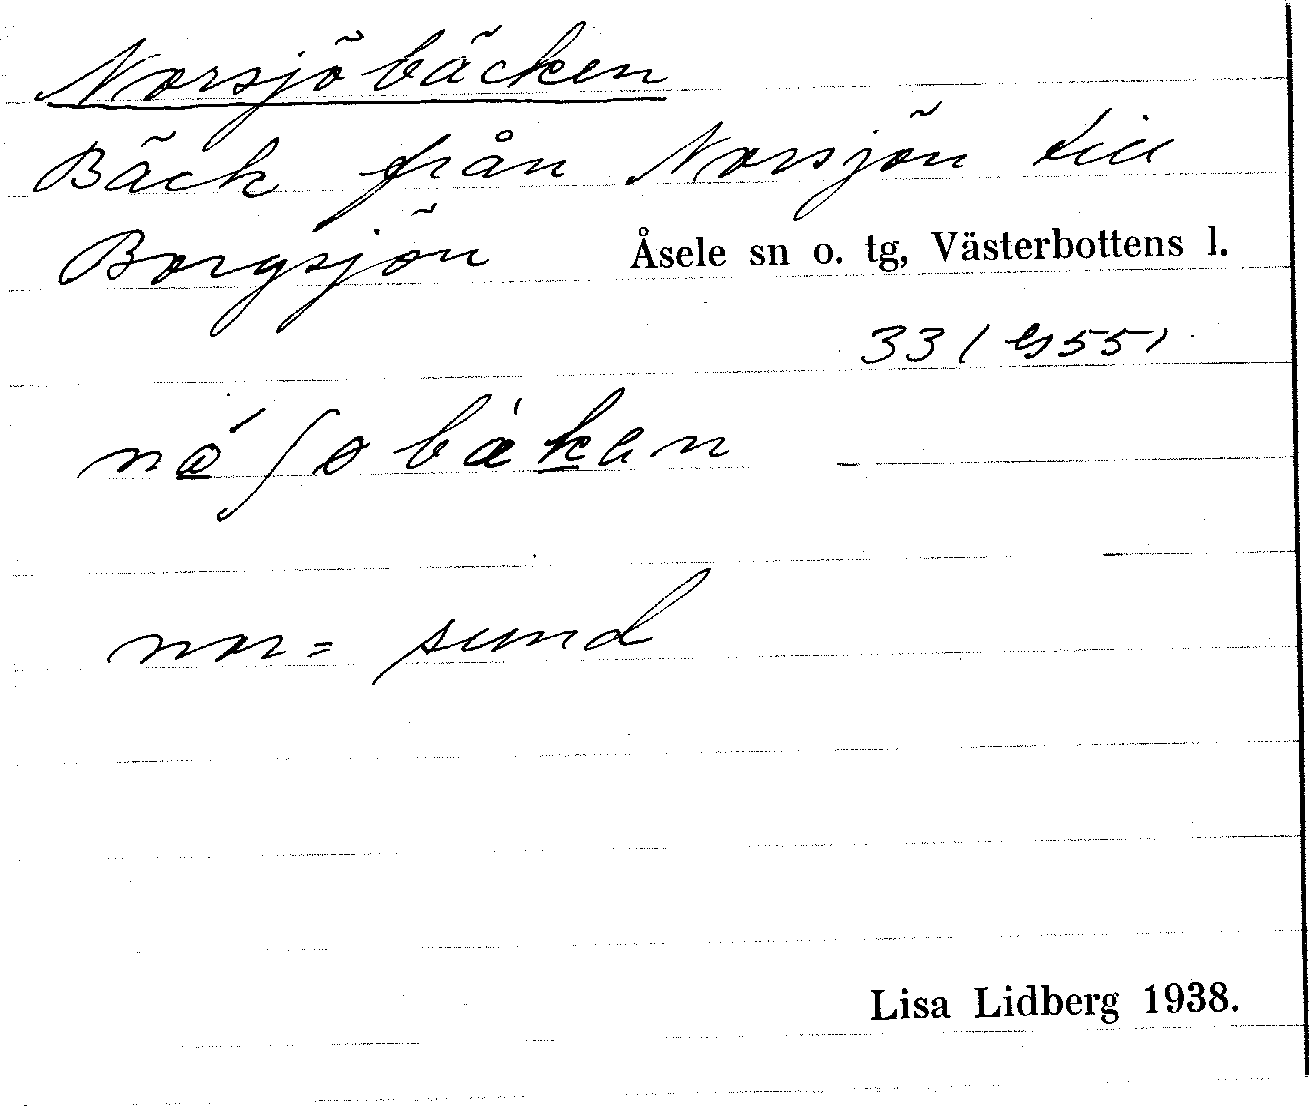 Norsjöbäcken
Bäck från Norsjön till
Borgsjön Åsele sn o. tg, Västerbottens l.
nor = sund
Lisa Lidberg 1938.